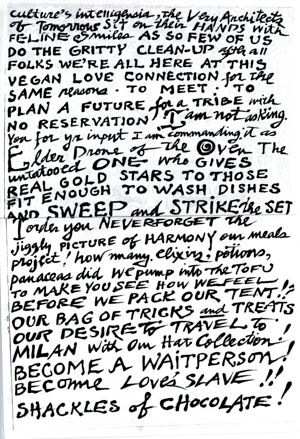 culture's intelligensia, the Very Architects
of Tomorrow Sit on their HANDS with
FELINE smiles AS SO FEW OF US
DO THE GRITTY CLEAN-UP after all
FOLKS WE'RE ALL HERE AT THIS
VEGAN LOVE CONNECTION for the
SAME reasons. TO MEET! TO
PLAN A FUTURE for a TRIBE with
NO RESERVATION! I am not asking
You for yr input I am commanding it as
Elder Drone of the Oven The
untatooed ONE who GIVES
REAL GOLD STARS TO THOSE
FIT ENOUGH TO WASH DISHES
AND SWEEP and STRIKE the SET
I order you NEVERFORGET the
jiggly PICTURE of HARMONY our meals
project! how many elixirs, potions,
panaceas did we pump into the TOFU
TO MAKE YOU SEE HOW WE FEEL
BEFORE WE PACK OUR TENT!!
OUR BAG OF TRICKS and TREATS
OUR DESIRE TO TRAVEL to
MILAN with Our Hat Collection!
BECOME A WAITPERSON!
BECOME Love's SLAVE!!
SHACKLES of CHOCOLATE!